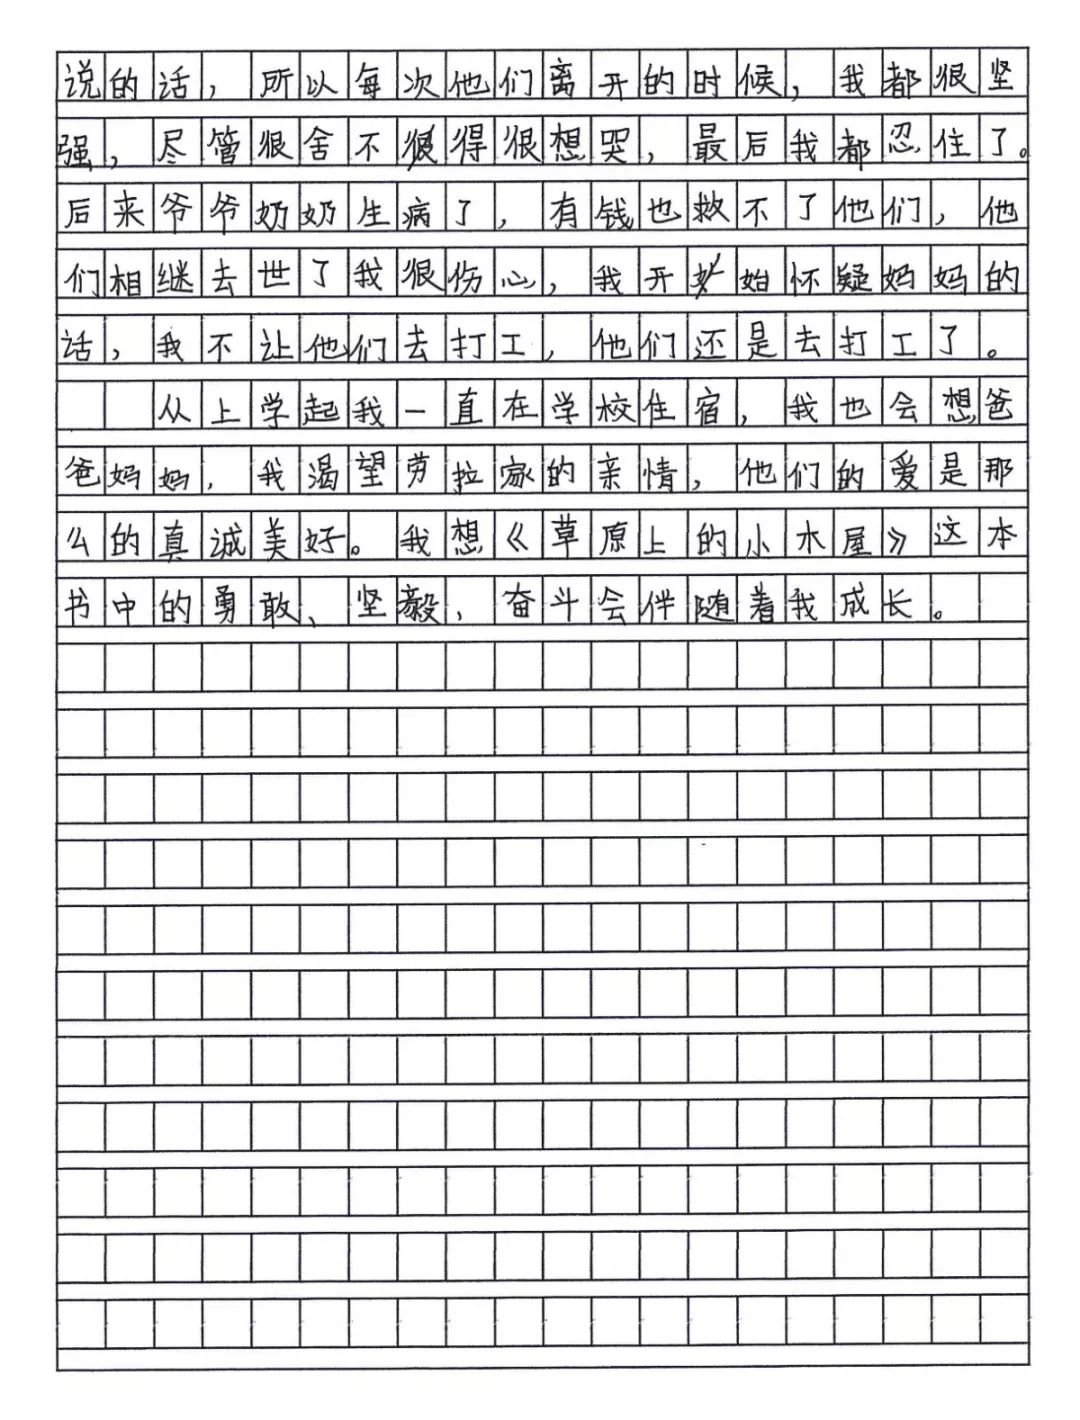 说的话，所以每次他们离开的时候，我都很坚
强，尽管很舍不得很想哭，最后我都忍住了。
后来爷爷奶奶生病了，有钱也救不了他们，他
们相继去世了我很伤心，我开始怀疑妈妈的
话，我不让他们去打工，他们还是去打工了。
从上学起我一直在学校住宿，我也会想爸
爸妈妈，我渴望劳拉家的亲情，他们的爱是那
么的真诚美好。我想《草原上的小木屋》这本
书中的勇敢、坚毅，奋斗会伴随着我成长。